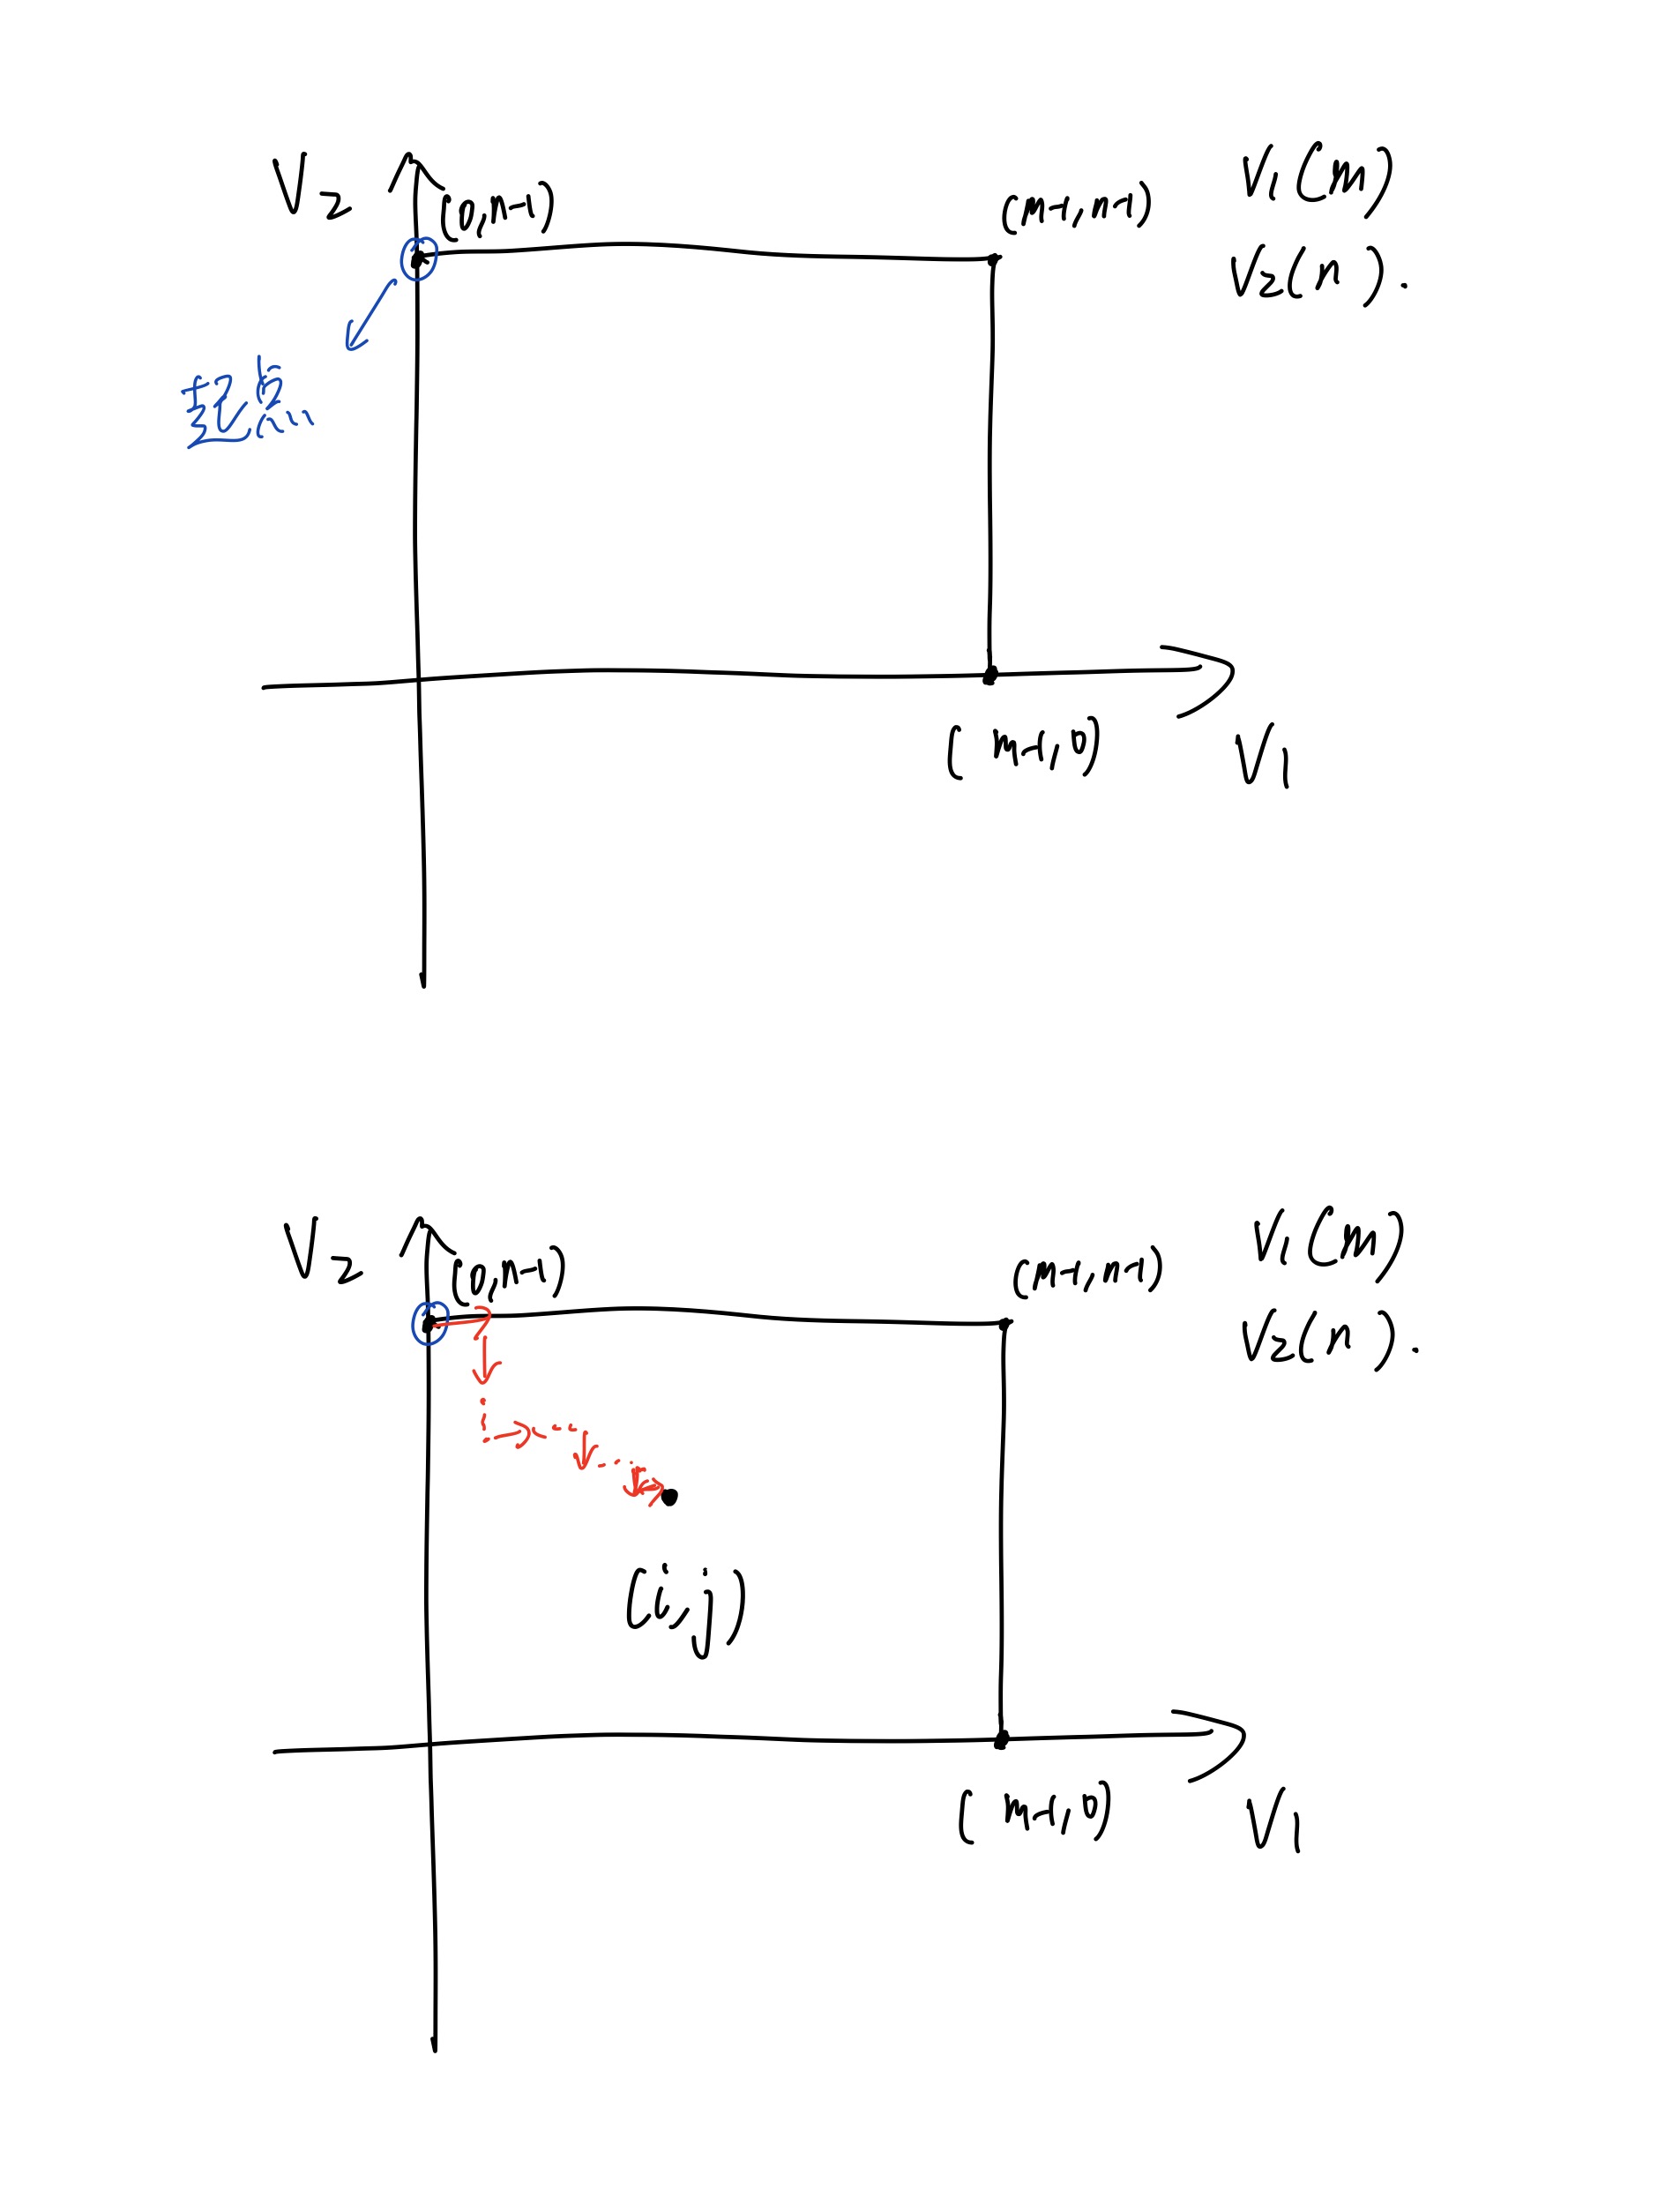 V2
(0,n-1)
(m-1,n-1)
V1(m)
V2(n).
起点
(m-1,0)
V1
V2
(0,n-1)
(m-1,n-1)
V1(m)
V2(n).
(i,j)
(m-1,0)
V1